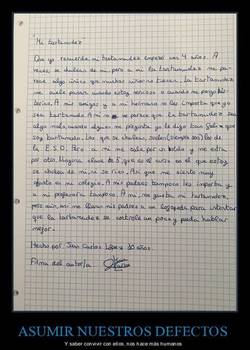 Mi tartamudez
Que yo recuerde mi tartamudez empezó a los 4 años. A
veces se chulean de mí, pero a mí la tartamudez me
hace algo único que muchos niños no tienen. La tartamudez
me suele pasar cuando estoy nervioso o cuando me pongo his-
térico. A mis amigos y a mi hermano no les importa que yo
sea tartamudo. A mí me parece que la tartamudez sea
algo malo, cuando alguien me pregunta yo le digo
soy tartamudo. Los que se chulean, suelen ser los de
la E.S.O. Pero a mí me sale por un oído y me entra
por otro. Ninguna clase de 5º, que es el curso en el que estoy
se chulean de mí, ni se ríen. Así que me siento muy
a gusto en mi colegio. A mis padres tampoco les importa y
a mi profesora tampoco. A mí me gusta mi tartamudez,
pero aún así me llevan mis padres a un logopeda para intentar
que la tartamudez se controle un poco y pueda hablar
mejor.
Hecho por: Juan Carlos López 10 años.
Firma del autor/a
ASUMIR NUESTROS DEFECTOS
Y saber convivir con ellos, nos hace más humanos